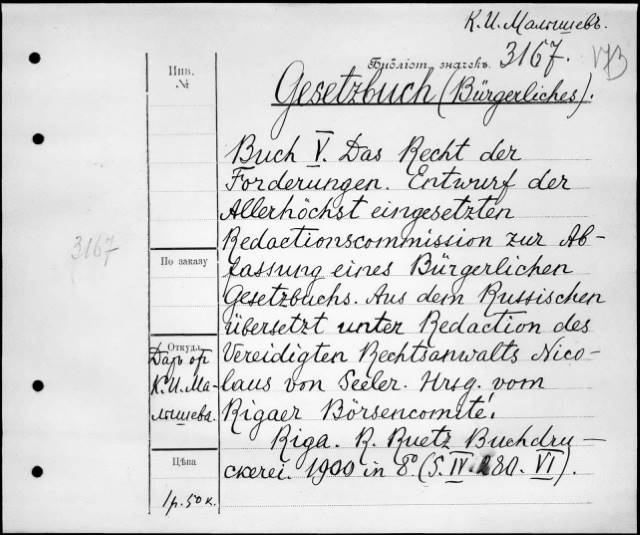 К. И. Малышевъ.
Библіот. значекъ. 3167. VB
Инв.
№
Gesetzbuch (Bürgerliches).
Buch V. Das Recht der
Forderungen. Entwurf der
Allerhöchst eingesetzten
3167
Redactionscommission zur Ab-
По заказу
fassung eines Bürgerlichen
Gesetzbuchs. Aus dem Russischen
übersetzt unter Redaction des
Откуда
Даръ
К. И. Ма-
лышева.
Vereidigten Rechtsanwalts Nico-
laus von Seeler. Hrsg. vom
Rigaer Börsencomité.
Riga. R. Ruetz Buchdru-
Цѣна
ckerei. 1900 in 8° (S. IV. 280. VI).
1 р. 50 к.